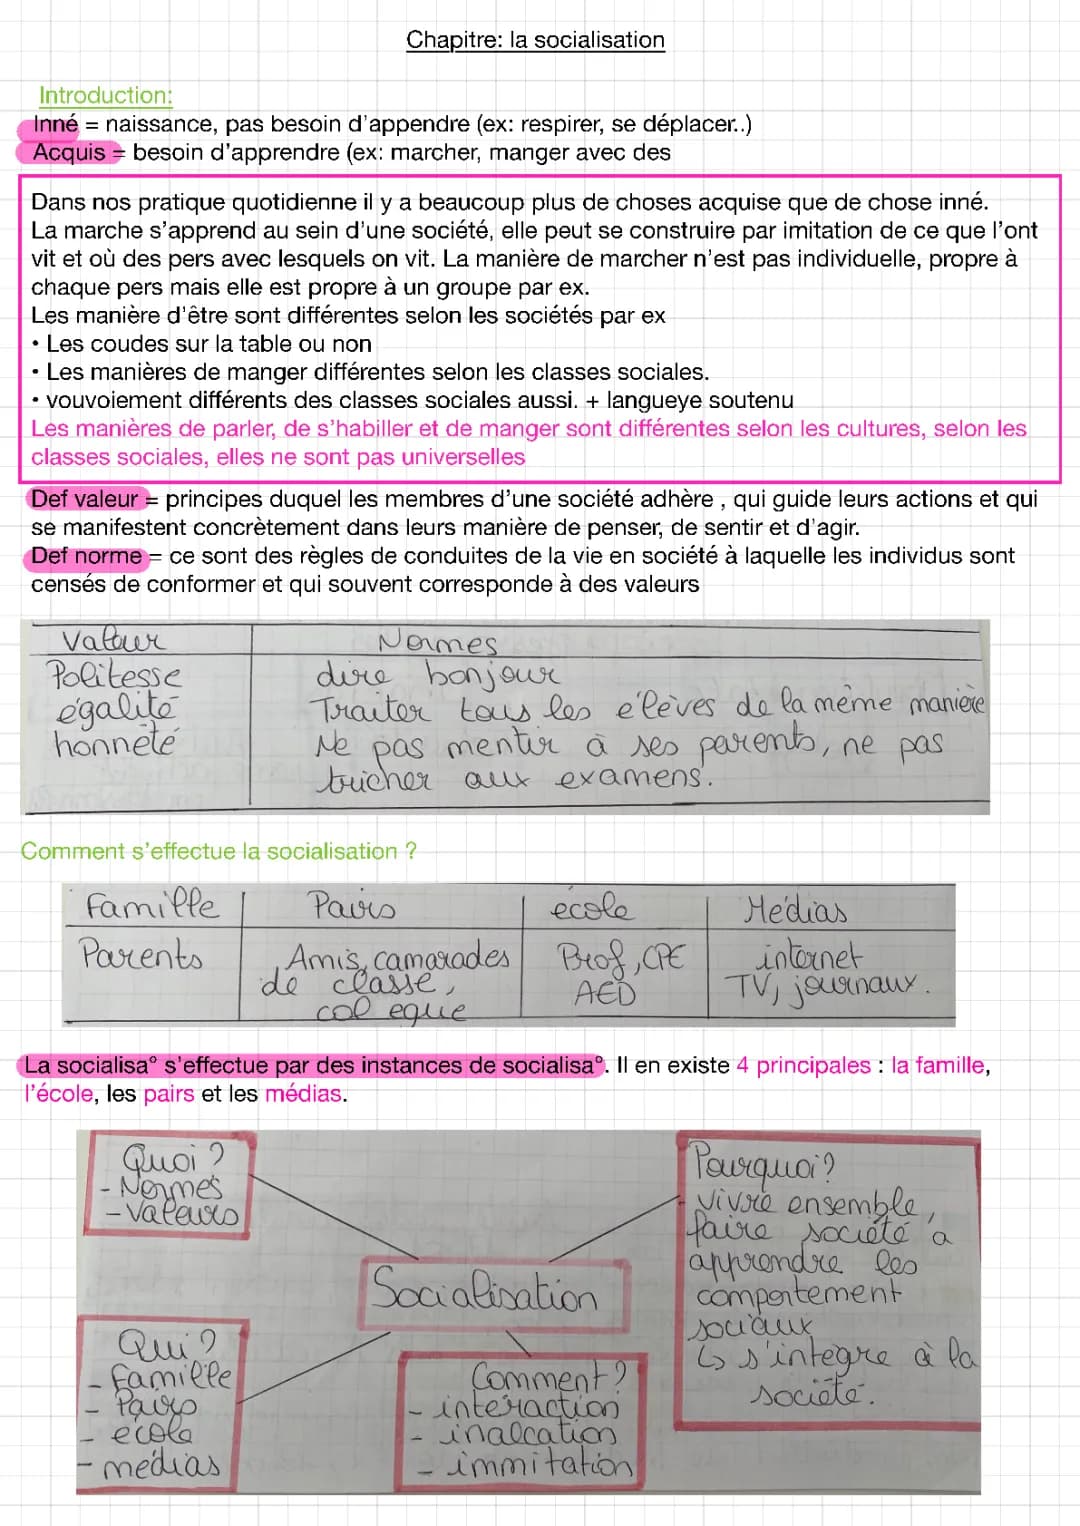 Chapitre: la socialisation
Introduction:
Inné = naissance, pas besoin d'appendre (ex: respirer, se déplacer..)
Acquis = besoin d'apprendre (ex: marcher, manger avec des
Dans nos pratique quotidienne il y a beaucoup plus de choses acquise que de chose inné.
La marche s'apprend au sein d'une société, elle peut se construire par imitation de ce que l'ont
vit et où des pers avec lesquels on vit. La manière de marcher n'est pas individuelle, propre à
chaque pers mais elle est propre à un groupe par ex.
Les manière d'être sont différentes selon les sociétés par ex
• Les coudes sur la table ou non
• Les manières de manger différentes selon les classes sociales.
• vouvoiement différents des classes sociales aussi. + langueye soutenu
Les manières de parler, de s'habiller et de manger sont différentes selon les cultures, selon les
classes sociales, elles ne sont pas universelles
Def valeur = principes duquel les membres d'une société adhère , qui guide leurs actions et qui
se manifestent concrètement dans leurs manière de penser, de sentir et d'agir.
Def norme = ce sont des règles de conduites de la vie en société à laquelle les individus sont
censés de conformer et qui souvent corresponde à des valeurs
Valeur Normes
Politesse dire bonjour
égalité Traiter tous les élèves de la même manière
honnêté Ne pas mentir à ses parents, ne pas
tricher aux examens.
Comment s'effectue la socialisation ?
Famille Pairs école Médias
Parents Amis, camarades Prof, CPE internet
de classe, AED TV, journaux.
col egue
La socialisa° s'effectue par des instances de socialisa°. Il en existe 4 principales : la famille,
l'école, les pairs et les médias.
Quoi ?
- Normes
- Valeurs
Pourquoi ?
- vivre ensemble,
faire société à
apprendre les
comportement
sociaux
↳ s'intègre à la
société.
Socialisation
Qui ?
- Famille
- Pairs
- école
- médias
Comment ?
- intéraction
- inalcation
- immitation